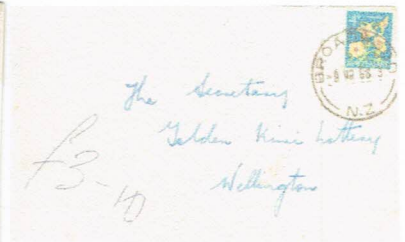 N.Z.
The Secretary
Golden Kiwi Lottery
Wellington
£3-10